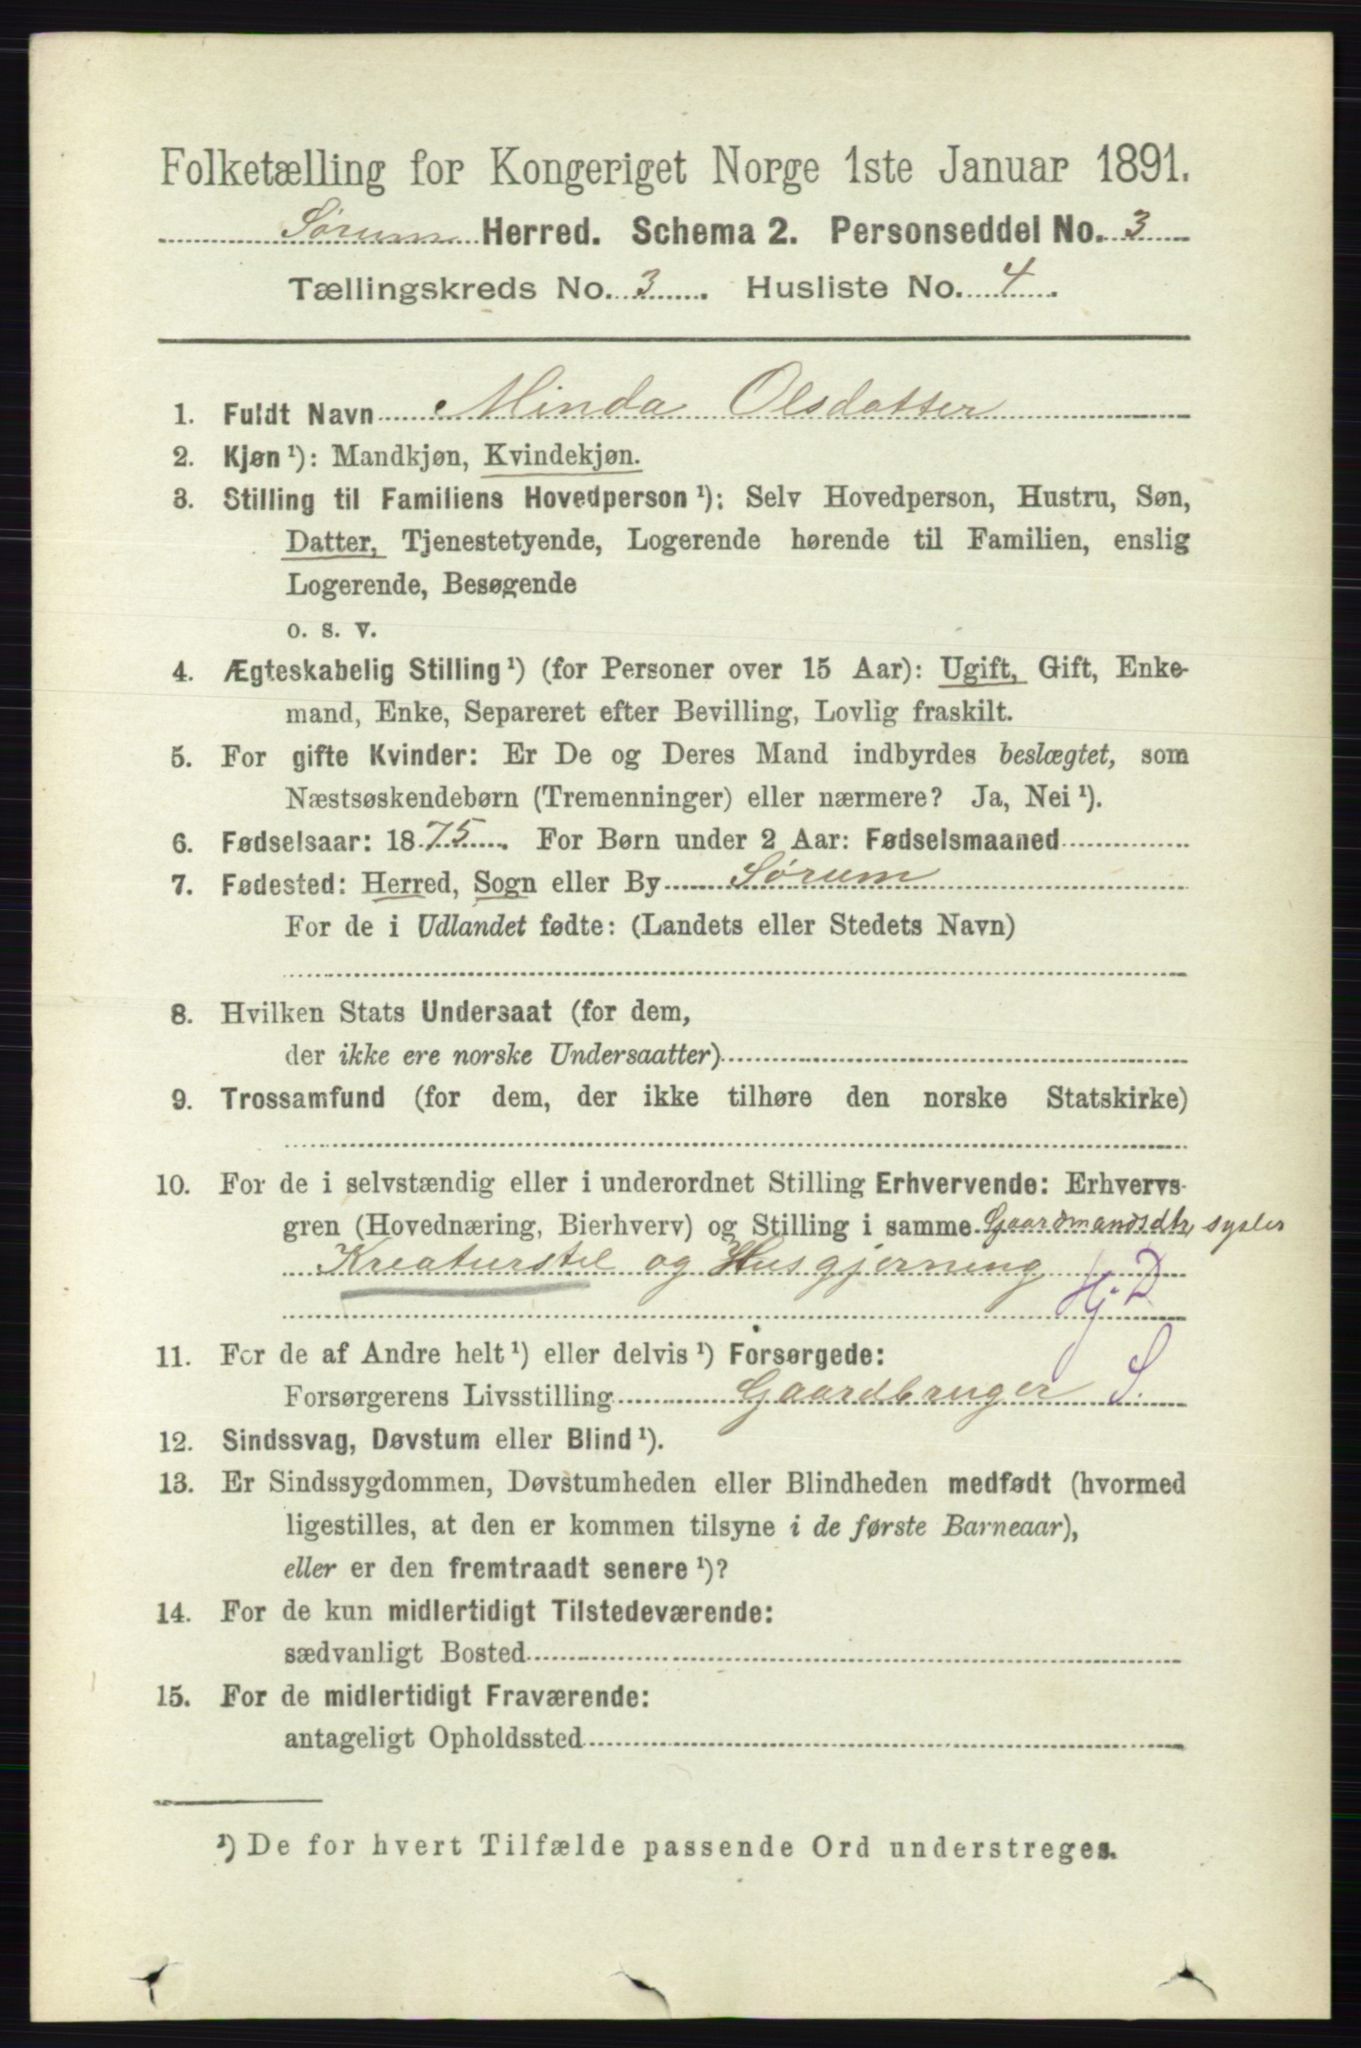 Folketælling for Kongeriget Norge 1ste Januar 1891.
Sørum Herred. Schema 2. Personseddel No. 3
Tællingskreds No. 3. Husliste No. 4.
1. Fuldt Navn Minda Olsdatter
2. Kjøn¹): Mandkjøn, Kvindekjøn.
3. Stilling til Familiens Hovedperson¹): Selv Hovedperson, Hustru, Søn,
Datter, Tjenestetyende, Logerende hørende til Familien, enslig
Logerende, Besøgende
o. s. v.
4. Ægteskabelig Stilling¹) (for Personer over 15 Aar): Ugift, Gift, Enke-
mand, Enke, Separeret efter Bevilling, Lovlig fraskilt.
5. For gifte Kvinder: Er De og Deres Mand indbyrdes beslægtet, som
Næstsøskendebørn (Tremenninger) eller nærmere? Ja, Nei¹).
6. Fødselsaar: 1875. For Børn under 2 Aar: Fødselsmaaned
7. Fødested: Herred, Sogn eller By Sørum
For de i Udlandet fødte: (Landets eller Stedets Navn)
8. Hvilken Stats Undersaat (for dem,
der ikke ere norske Undersaatter)
9. Trossamfund (for dem, der ikke tilhøre den norske Statskirke)
10. For de i selvstændig eller i underordnet Stilling Erhvervende: Erhvervs-
gren (Hovednæring, Bierhverv) og Stilling i samme Gaardmandsdtr, sysler
Kreaturstel og Husgjerning
Hj. D
11. For de af Andre helt¹) eller delvis¹) Forsørgede:
Forsørgerens Livsstilling Gaardbruger S.
12. Sindssvag, Døvstum eller Blind¹).
13. Er Sindssygdommen, Døvstumheden eller Blindheden medfødt (hvormed
ligestilles, at den er kommen tilsyne i de første Barneaar),
eller er den fremtraadt senere¹)?
14. For de kun midlertidigt Tilstedeværende:
sædvanligt Bosted
15. For de midlertidigt Fraværende:
antageligt Opholdssted
¹) De for hvert Tilfælde passende Ord understreges.